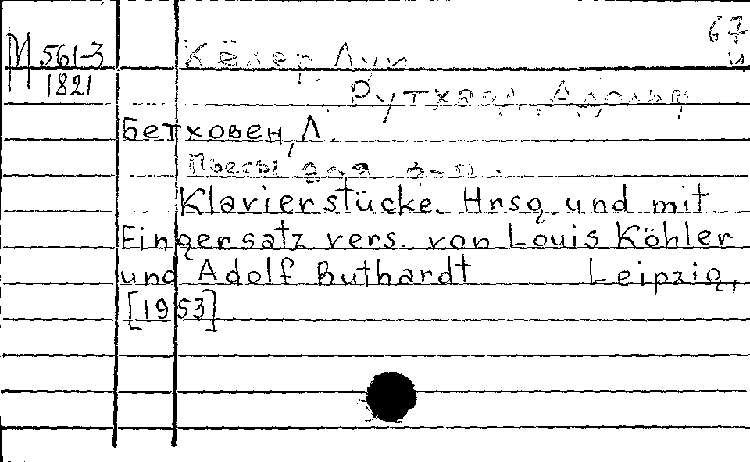 67
и
М 561-3
1821
Кёлер, Луи
Рутхардт, Адольф
Бетховен, Л.
Пьесы для ф-п.
Klavierstücke. Hrsg. und mit
Fingersatz vers. von Louis Köhler
und Adolf Buthardt Leipzig,
[1953]